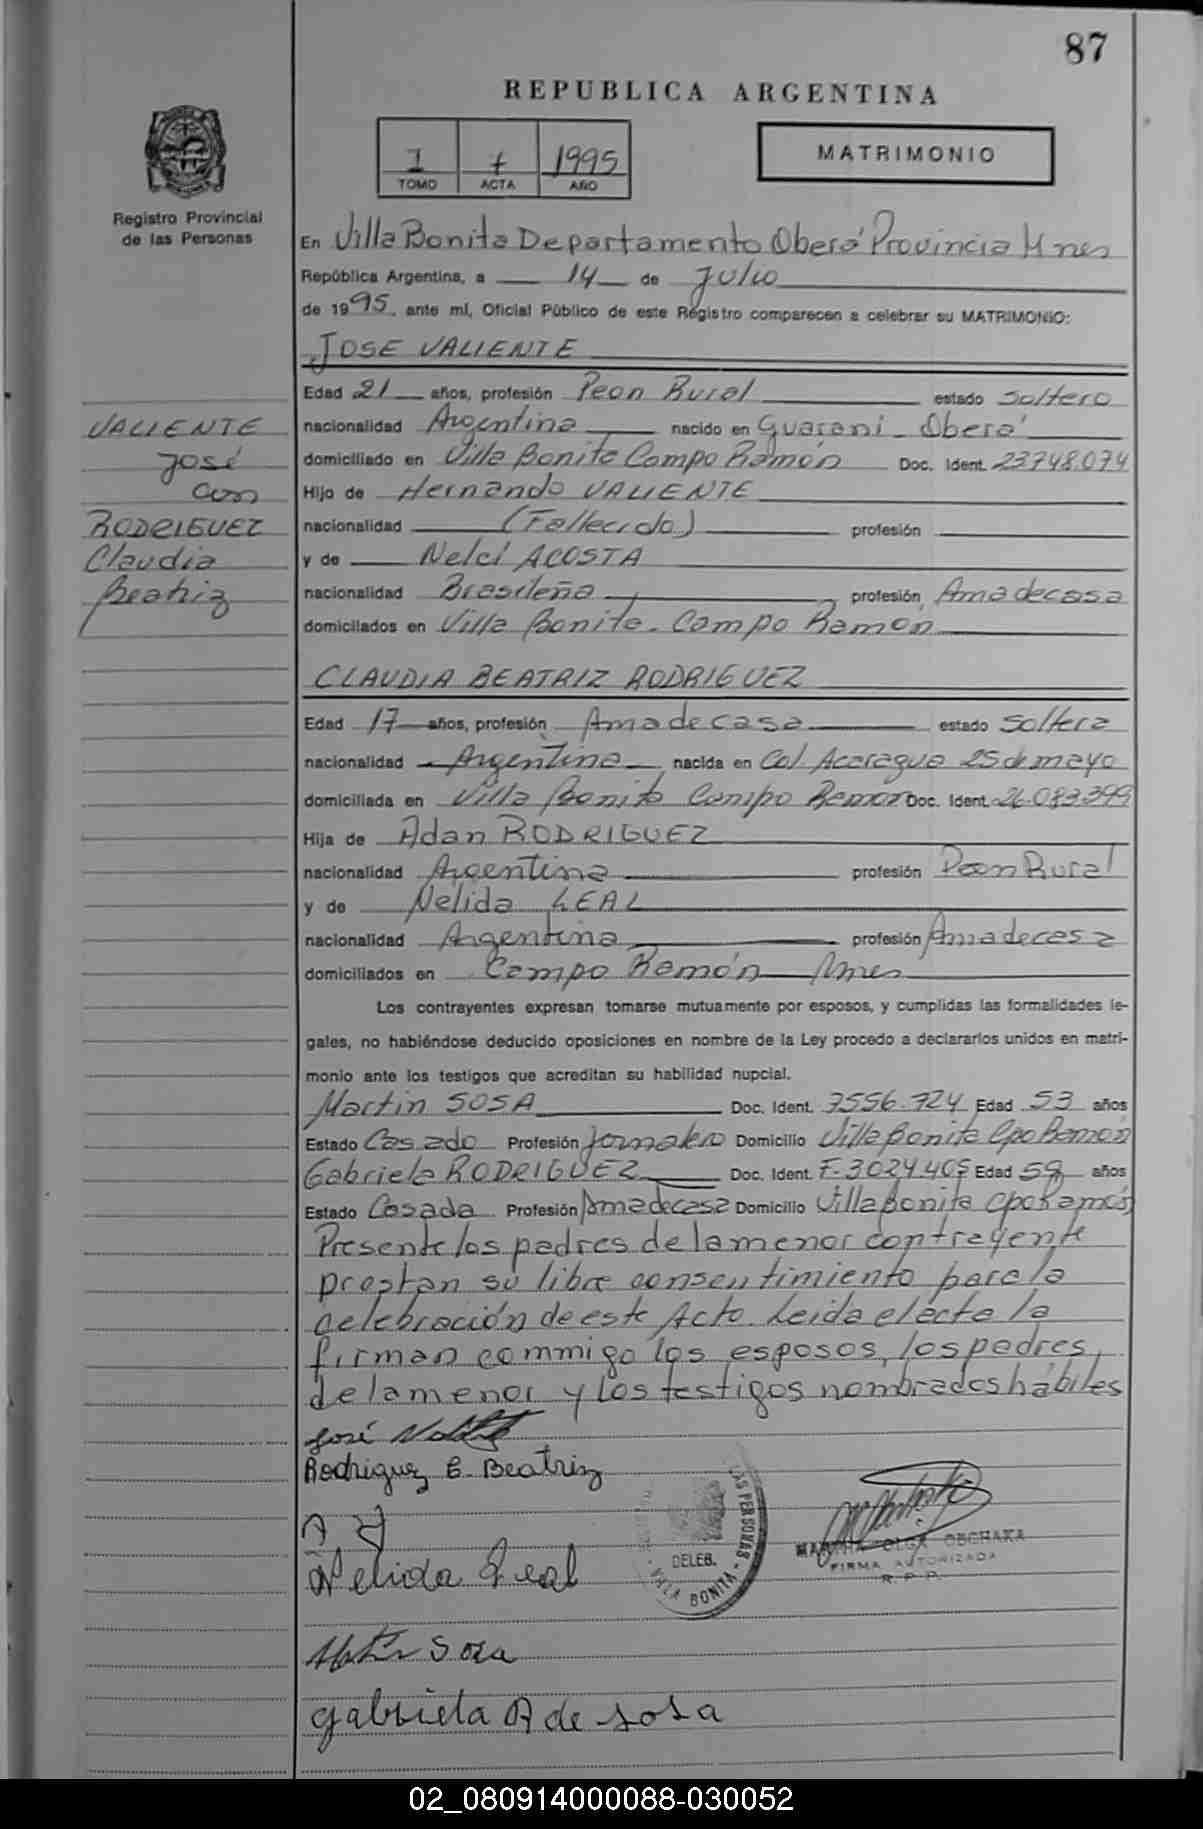 87
REPUBLICA ARGENTINA
1 1995
TOMO ACTA AÑO
MATRIMONIO
Registro Provincial
de las Personas
En Villa Bonita Departamento Oberá Provincia Mnes
República Argentina, a 14 de Julio
de 1995, ante mí, Oficial Público de este Registro comparecen a celebrar su MATRIMONIO:
JOSE VALIENTE
Edad 21 años, profesión Peon Rural estado soltero
VALIENTE
José
con
RODRIGUEZ
Claudia
Beatriz
nacionalidad Argentina nacido en Guarani - Oberá
domiciliado en Villa Bonita Campo Ramón Doc. Ident. 23748.074
Hijo de Hernando VALIENTE
nacionalidad (Fallecido) profesión
y de Nelci ACOSTA
nacionalidad Brasileña profesión Amadecasa
domiciliados en Villa Bonita - Campo Ramón
CLAUDIA BEATRIZ RODRIGUEZ
Edad 17 años, profesión Amadecasa estado soltera
nacionalidad Argentina nacida en Col. Acaragua 25 de mayo
domiciliada en Villa Bonita Campo Ramon Doc. Ident. 26.083.399
Hija de Adan RODRIGUEZ
nacionalidad Argentina profesión Peon Rural
y de Nélida LEAL
nacionalidad Argentina profesión Amadecasa
domiciliados en Campo Ramón Mnes
Los contrayentes expresan tomarse mutuamente por esposos, y cumplidas las formalidades le-
gales, no habiéndose deducido oposiciones en nombre de la Ley procedo a declararlos unidos en matri-
monio ante los testigos que acreditan su habilidad nupcial.
Martin SOSA Doc. Ident. 7556.724 Edad 53 años
Estado Casado Profesión Jornalero Domicilio Villa Bonita Cpo Ramón
Gabriela RODRIGUEZ Doc. Ident. F-3024.405 Edad 59 años
Estado Casada Profesión Amadecasa Domicilio Villa Bonita Cpo Ramón
Presente los padres de la menor contrayente
prestan su libre consentimiento para la
celebración de este Acto. Leida el acta la
firman commigo los esposos, los padres
de la menor y los testigos nombrados hábiles
José
Rodriguez C. Beatriz
Nelida Leal
LAS PERSONAS - DELEB. VILLA BONITA -
OLGA OBCHAKA
FIRMA AUTORIZADA
R. P. P.
Sosa
gabriela R de sosa
02_080914000088-030052